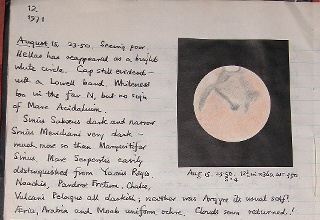 12
1971
August 15. 23.50. Seeing poor.
Hellas has reappeared as a bright
white circle. Cap still evident -
with a Lowell band. Whiteness
too in the far N, but no sign
of Mare Acidalium.
Sinus Sabæus dark and narrow.
Sinus Meridiani very dark -
much more so than Margaritifer
Sinus. Mare Serpentis easily
distinguished from Yaonis Regio.
Noachis, Pandoræ Fretum,
Vulcani Pelagus all darkish; neither was Argyre its usual self!
Æria, Arabia and Moab uniform ochre. Clouds soon returned!
Aug 15. 23.50. 12½ in x360,